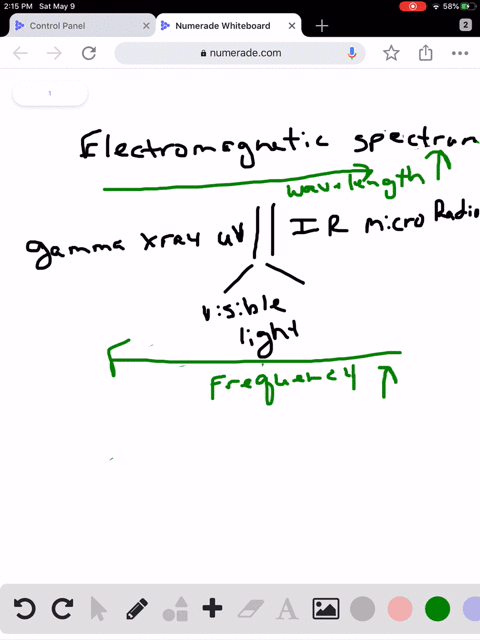 2:15 PM Sat May 9
58%
Control Panel
Numerade Whiteboard
2
numerade.com
1
Electromagnetic spectrum
wavelength
gamma xray uV IR micro Radio
visible
light
Frequency
A